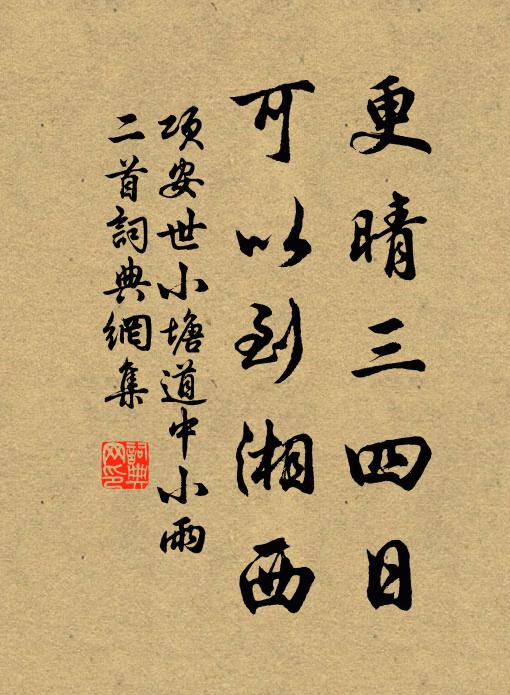 更晴三四日
可以到湘西
项安世小塘道中小雨
二首詞典網集
詞典網印